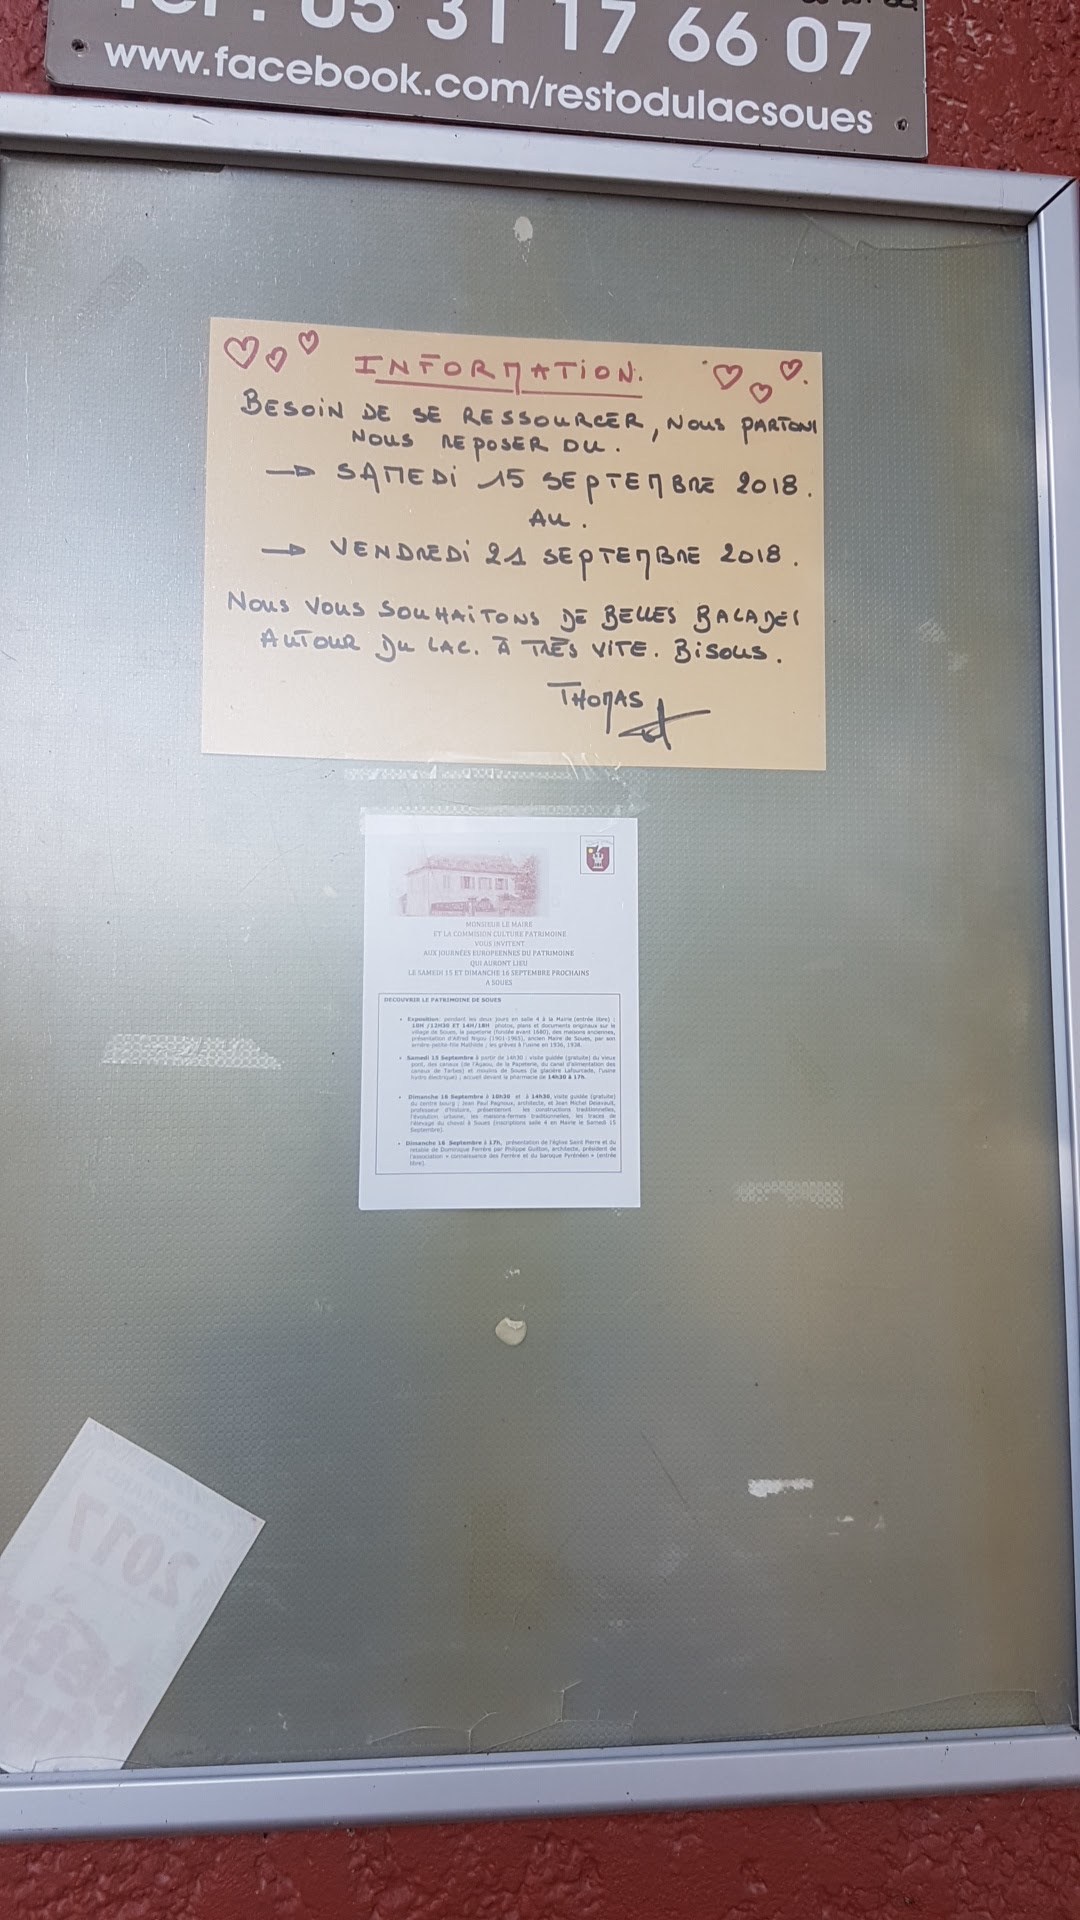 Tel : 05 31 17 66 07
www.facebook.com/restodulacsoues
INFORMATION.
BESOIN DE SE RESSOURCER, NOUS PARTONS
NOUS REPOSER DU.
→ SAMEDI 15 SEPTEMBRE 2018.
AU.
→ VENDREDI 21 SEPTEMBRE 2018.
NOUS VOUS SOUHAITONS DE BELLES BALADES
AUTOUR DU LAC. À TRÈS VITE. BISOUS.
THOMAS
MONSIEUR LE MAIRE
ET LA COMMISION CULTURE PATRIMOINE
VOUS INVITENT
AUX JOURNÉES EUROPEENNES DU PATRIMOINE
QUI AURONT LIEU
LE SAMEDI 15 ET DIMANCHE 16 SEPTEMBRE PROCHAINS
A SOUES
DECOUVRIR LE PATRIMOINE DE SOUES
• Exposition: pendant les deux jours en salle 4 à la Mairie (entrée libre) :
10H /12H30 ET 14H/18H photos, plans et documents originaux sur le
village de Soues, la papeterie (fondée avant 1680), des maisons anciennes,
présentation d'Alfred Nigou (1901-1965), ancien Maire de Soues, par son
arrière petite-fille Mathilde ; les grèves à l'usine en 1936, 1938.
• Samedi 15 Septembre à partir de 14h30 : visite guidée (gratuite) du vieux
pont, des canaux (de l'Agaou, de la Papeterie, du canal d'alimentation des
canaux de Tarbes) et moulins de Soues (la glacière Lafourcade, l'usine
hydro électrique) ; accueil devant la pharmacie de 14h30 à 17h.
• Dimanche 16 Septembre à 10h30 et à 14h30, visite guidée (gratuite)
du centre bourg ; Jean Paul Pagnoux, architecte, et Jean Michel Delavault,
professeur d'histoire, présenteront les constructions traditionnelles,
l'évolution urbaine, les maisons-fermes traditionnelles, les traces de
l'élevage du cheval à Soues (inscriptions salle 4 en Mairie le Samedi 15
Septembre).
• Dimanche 16 Septembre à 17h, présentation de l'église Saint Pierre et du
retable de Dominique Ferrère par Philippe Guitton, architecte, président de
l'association « connaissance des Ferrère et du baroque Pyrénéen » (entrée
libre).
2017